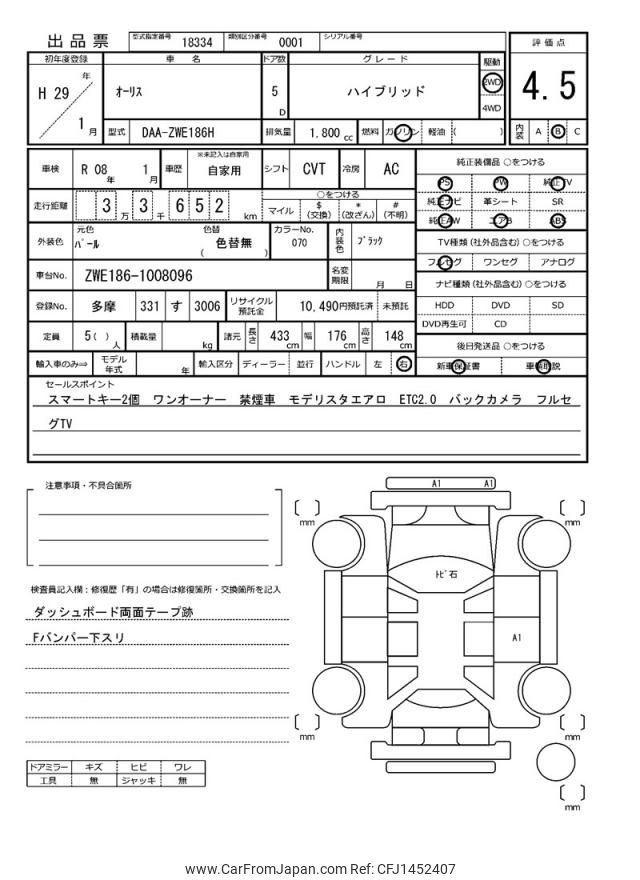 出品票 型式指定番号 18334 類別区分番号 0001 シリアル番号
初年度登録 車名 ドア数 グレード 駆動 評価点
H 29 年 1 月 オーリス 5 D ハイブリッド 2WD 4WD 4.5
型式 DAA-ZWE186H 排気量 1.800 cc 燃料 ガソリン 軽油 ( ) 内装 A B C
車検 R 08 年 1 月 車歴 ※未記入は自家用 自家用 シフト CVT 冷房 AC
純正装備品 ○をつける
PS PW 純正TV
純正ナビ 革シート SR
純正AW エアB ABS
走行距離 3 万 3 千 6 5 2 km ○をつける マイル $ (交換) * (改ざん) # (不明)
外装色 元色 パール 色替 色替無 ( ) カラーNo. 070 内装色 ブラック
TV種類 (社外品含む) ○をつける
フルセグ ワンセグ アナログ
車台No. ZWE186-1008096 名変期限 月 日
ナビ種類 (社外品含む) ○をつける
HDD DVD SD
DVD再生可 CD
登録No. 多摩 331 す 3006 リサイクル預託金 10,490円預託済 未預託
定員 5 ( ) 人 積載量 kg 諸元 長さ 433 cm 幅 176 cm 高さ 148 cm
後日発送品 ○をつける
新車保証書 車輌取説
輸入車のみ⇒ モデル年式 年 輸入区分 ディーラー 並行 ハンドル 左 右
セールスポイント
スマートキー2個 ワンオーナー 禁煙車 モデリスタエアロ ETC2.0 バックカメラ フルセ
グTV
注意事項・不具合箇所
A1 A1
mm mm
トビ石
検査員記入欄：修復歴「有」の場合は修復箇所・交換箇所を記入
ダッシュボード両面テープ跡
Fバンパー下スリ
A1
mm mm
ドアミラー キズ ヒビ ワレ
工具 無 ジャッキ 無
mm
www.CarFromJapan.com Ref: CFJ1452407